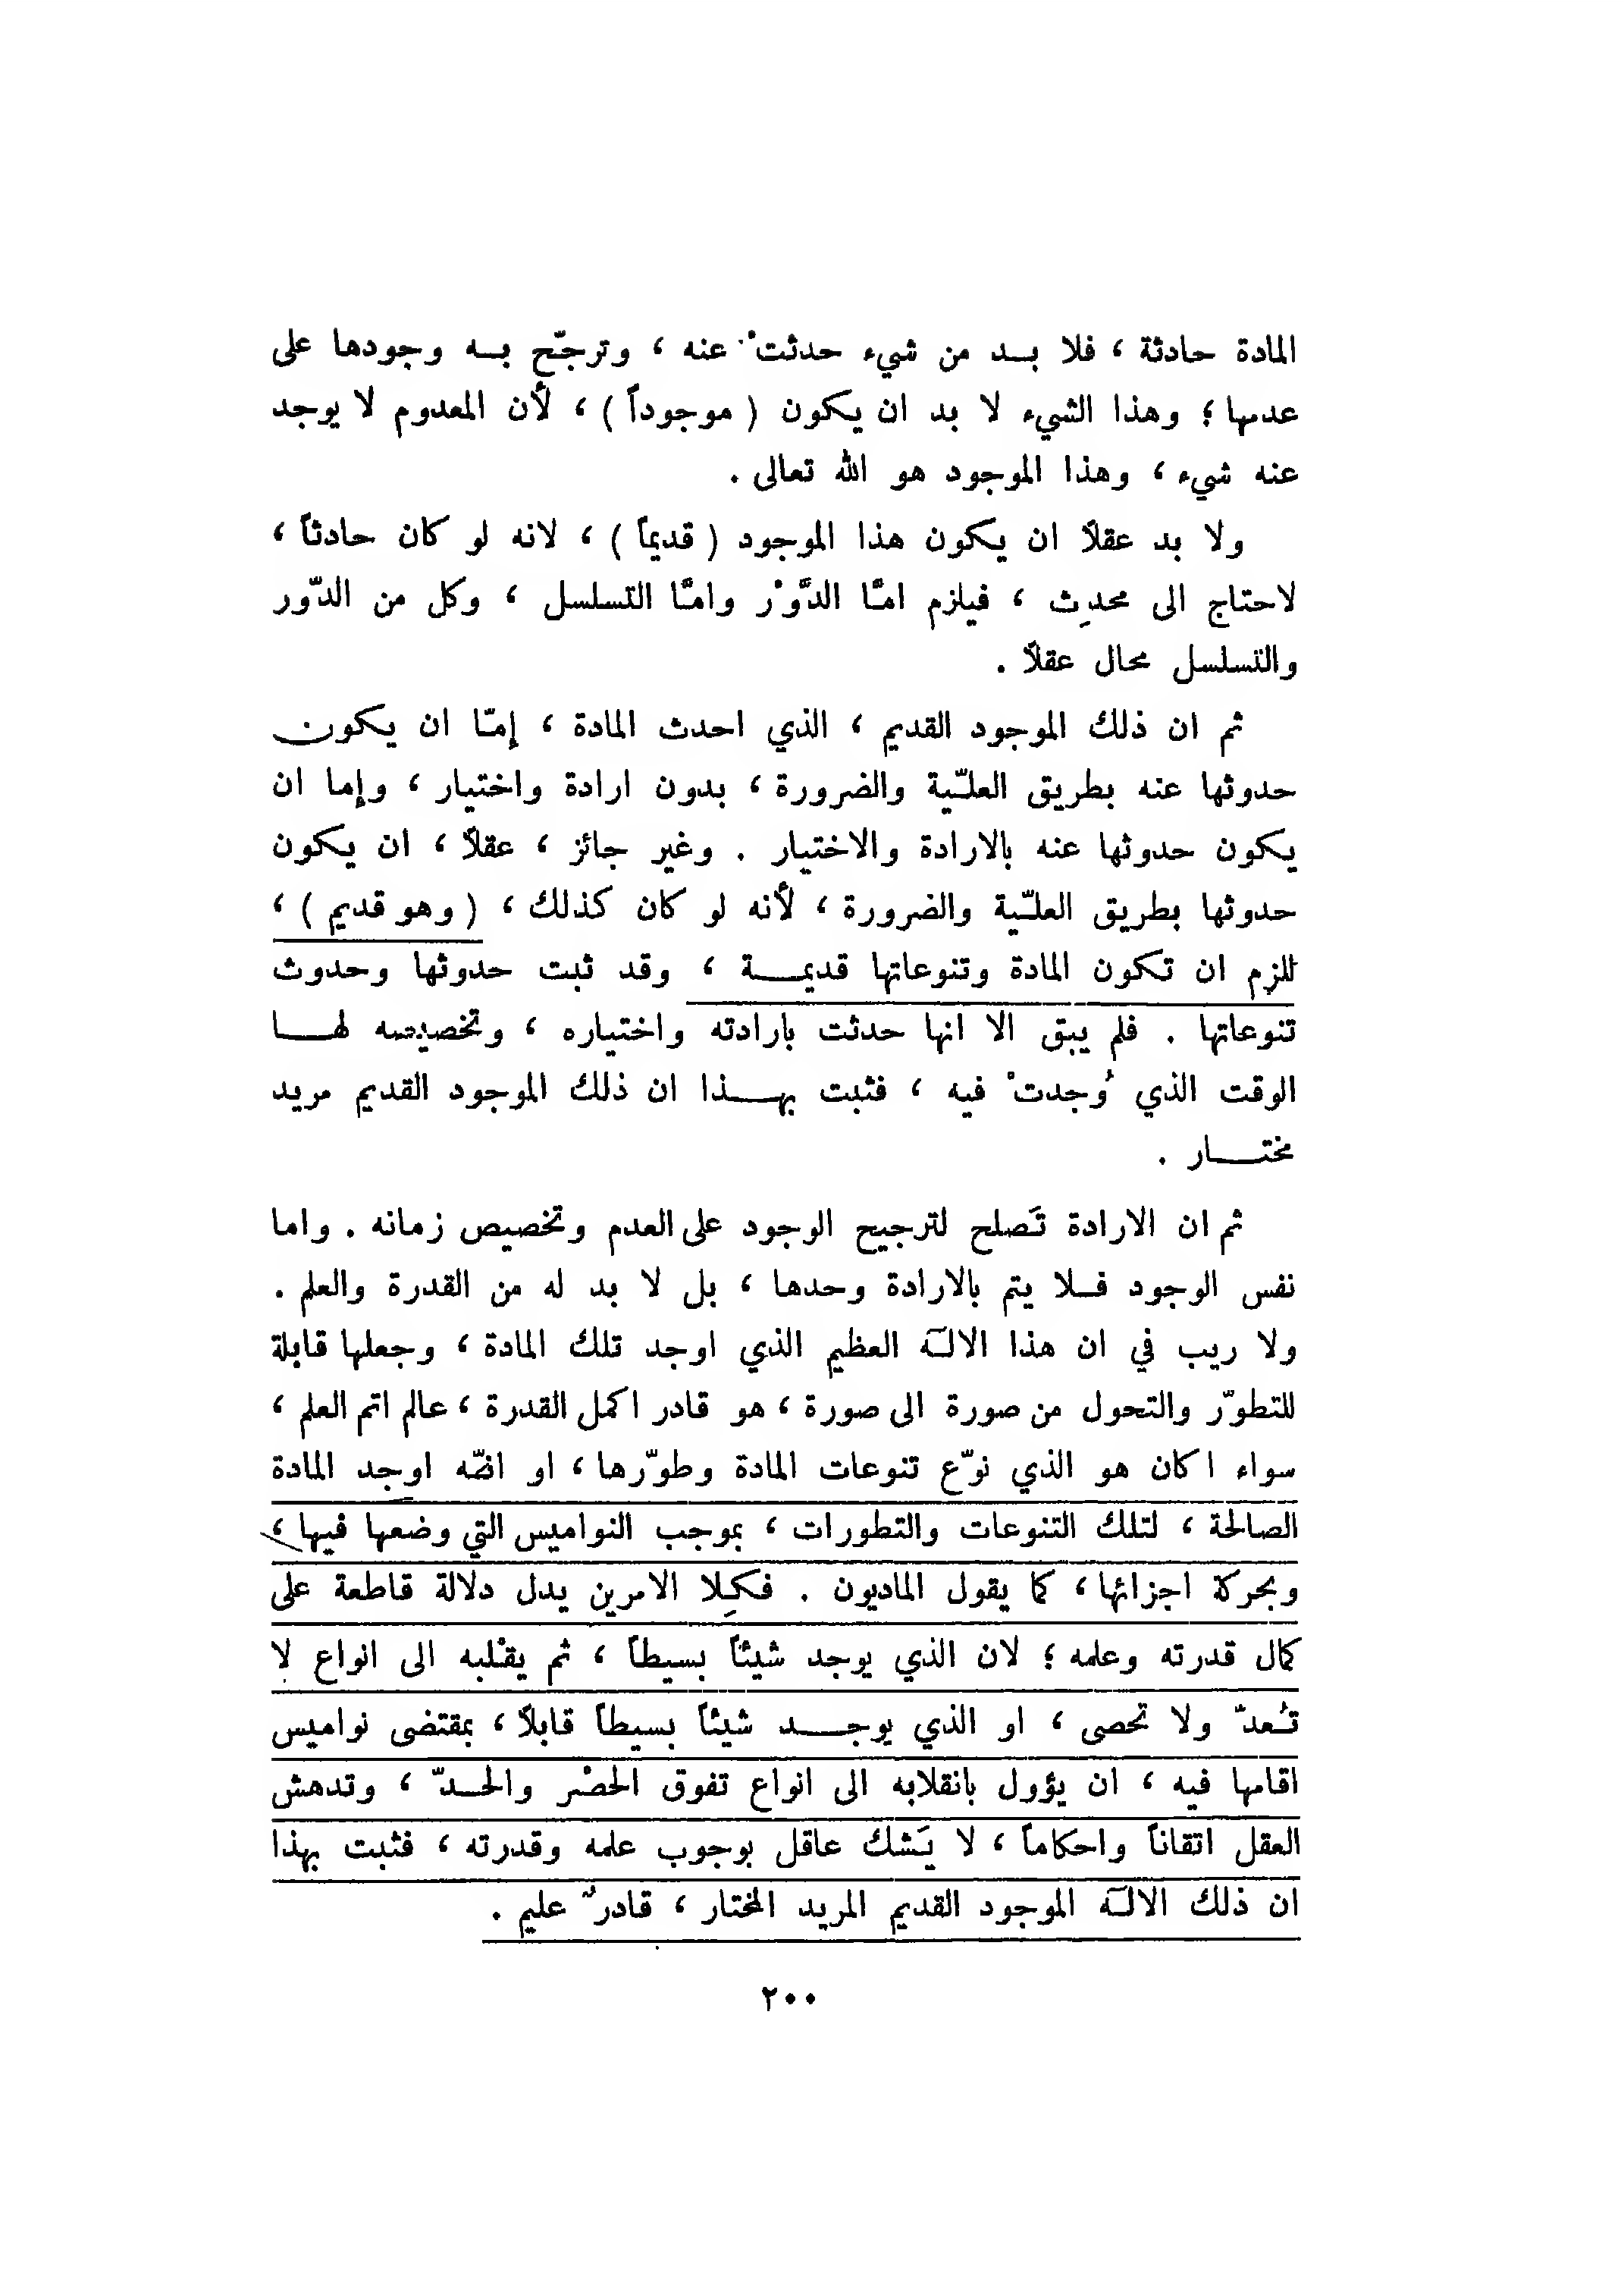 المادة حادثة ، فلا بـد من شيء حدثتْ عنه ، وترجّح بـه وجودها على
عدمها ؛ وهذا الشيء لا بد ان يكون ( موجوداً ) ، لأن المعدوم لا يوجد
عنه شيء ، وهذا الموجود هو الله تعالى .
ولا بد عقلاً ان يكون هذا الموجود ( قديماً ) ، لانه لو كان حادثاً ،
لاحتاج الى محدِث ، فيلزم امّا الدَّوْر وامّا التسلسل ، وكل من الدّور
والتسلسل محال عقلاً .
ثم ان ذلك الموجود القديم ، الذي احدث المادة ، إمّا ان يكون
حدوثها عنه بطريق العلّية والضرورة ، بدون ارادة واختيار ، وإما ان
يكون حدوثها عنه بالارادة والاختيار . وغير جائز ، عقلاً ، ان يكون
حدوثها بطريق العلّية والضرورة ، لأنه لو كان كذلك ، ( وهو قديم ) ،
للزم ان تكون المادة وتنوعاتها قديمـة ، وقد ثبت حدوثها وحدوث
تنوعاتها . فلم يبق الا انها حدثت بارادته واختياره ، وتخصيصه لهـا
الوقت الذي وُجدتْ فيه ، فثبت بهـذا ان ذلك الموجود القديم مريد
مختـار .
ثم ان الارادة تَصلح لترجيح الوجود على العدم وتخصيص زمانه . واما
نفس الوجود فـلا يتم بالارادة وحدها ، بل لا بد له من القدرة والعلم .
ولا ريب في ان هذا الالٓه العظيم الذي اوجد تلك المادة ، وجعلها قابلة
للتطوّر والتحول من صورة الى صورة ، هو قادر اكمل القدرة ، عالم اتم العلم ،
سواء اكان هو الذي نوّع تنوعات المادة وطوّرها ، او انّه اوجد المادة
الصالحة ، لتلك التنوعات والتطورات ، بموجب النواميس التي وضعها فيها ،
وبحركة اجزائها ، كما يقول الماديون . فكِلا الامرين يدل دلالة قاطعة على
كمال قدرته وعلمه ؛ لان الذي يوجد شيئاً بسيطاً ، ثم يقْلبه الى انواع لا
تُعدّ ولا تحصى ، او الذي يوجـد شيئاً بسيطاً قابلاً ، بمقتضى نواميس
اقامها فيه ، ان يؤول بانقلابه الى انواع تفوق الحصْر والحـدّ ، وتدهش
العقل اتقاناً واحكاماً ، لا يَشك عاقل بوجوب علمه وقدرته ، فثبت بهذا
ان ذلك الالٓه الموجود القديم المريد المختار ، قادرٌ عليم .
٢٠٠